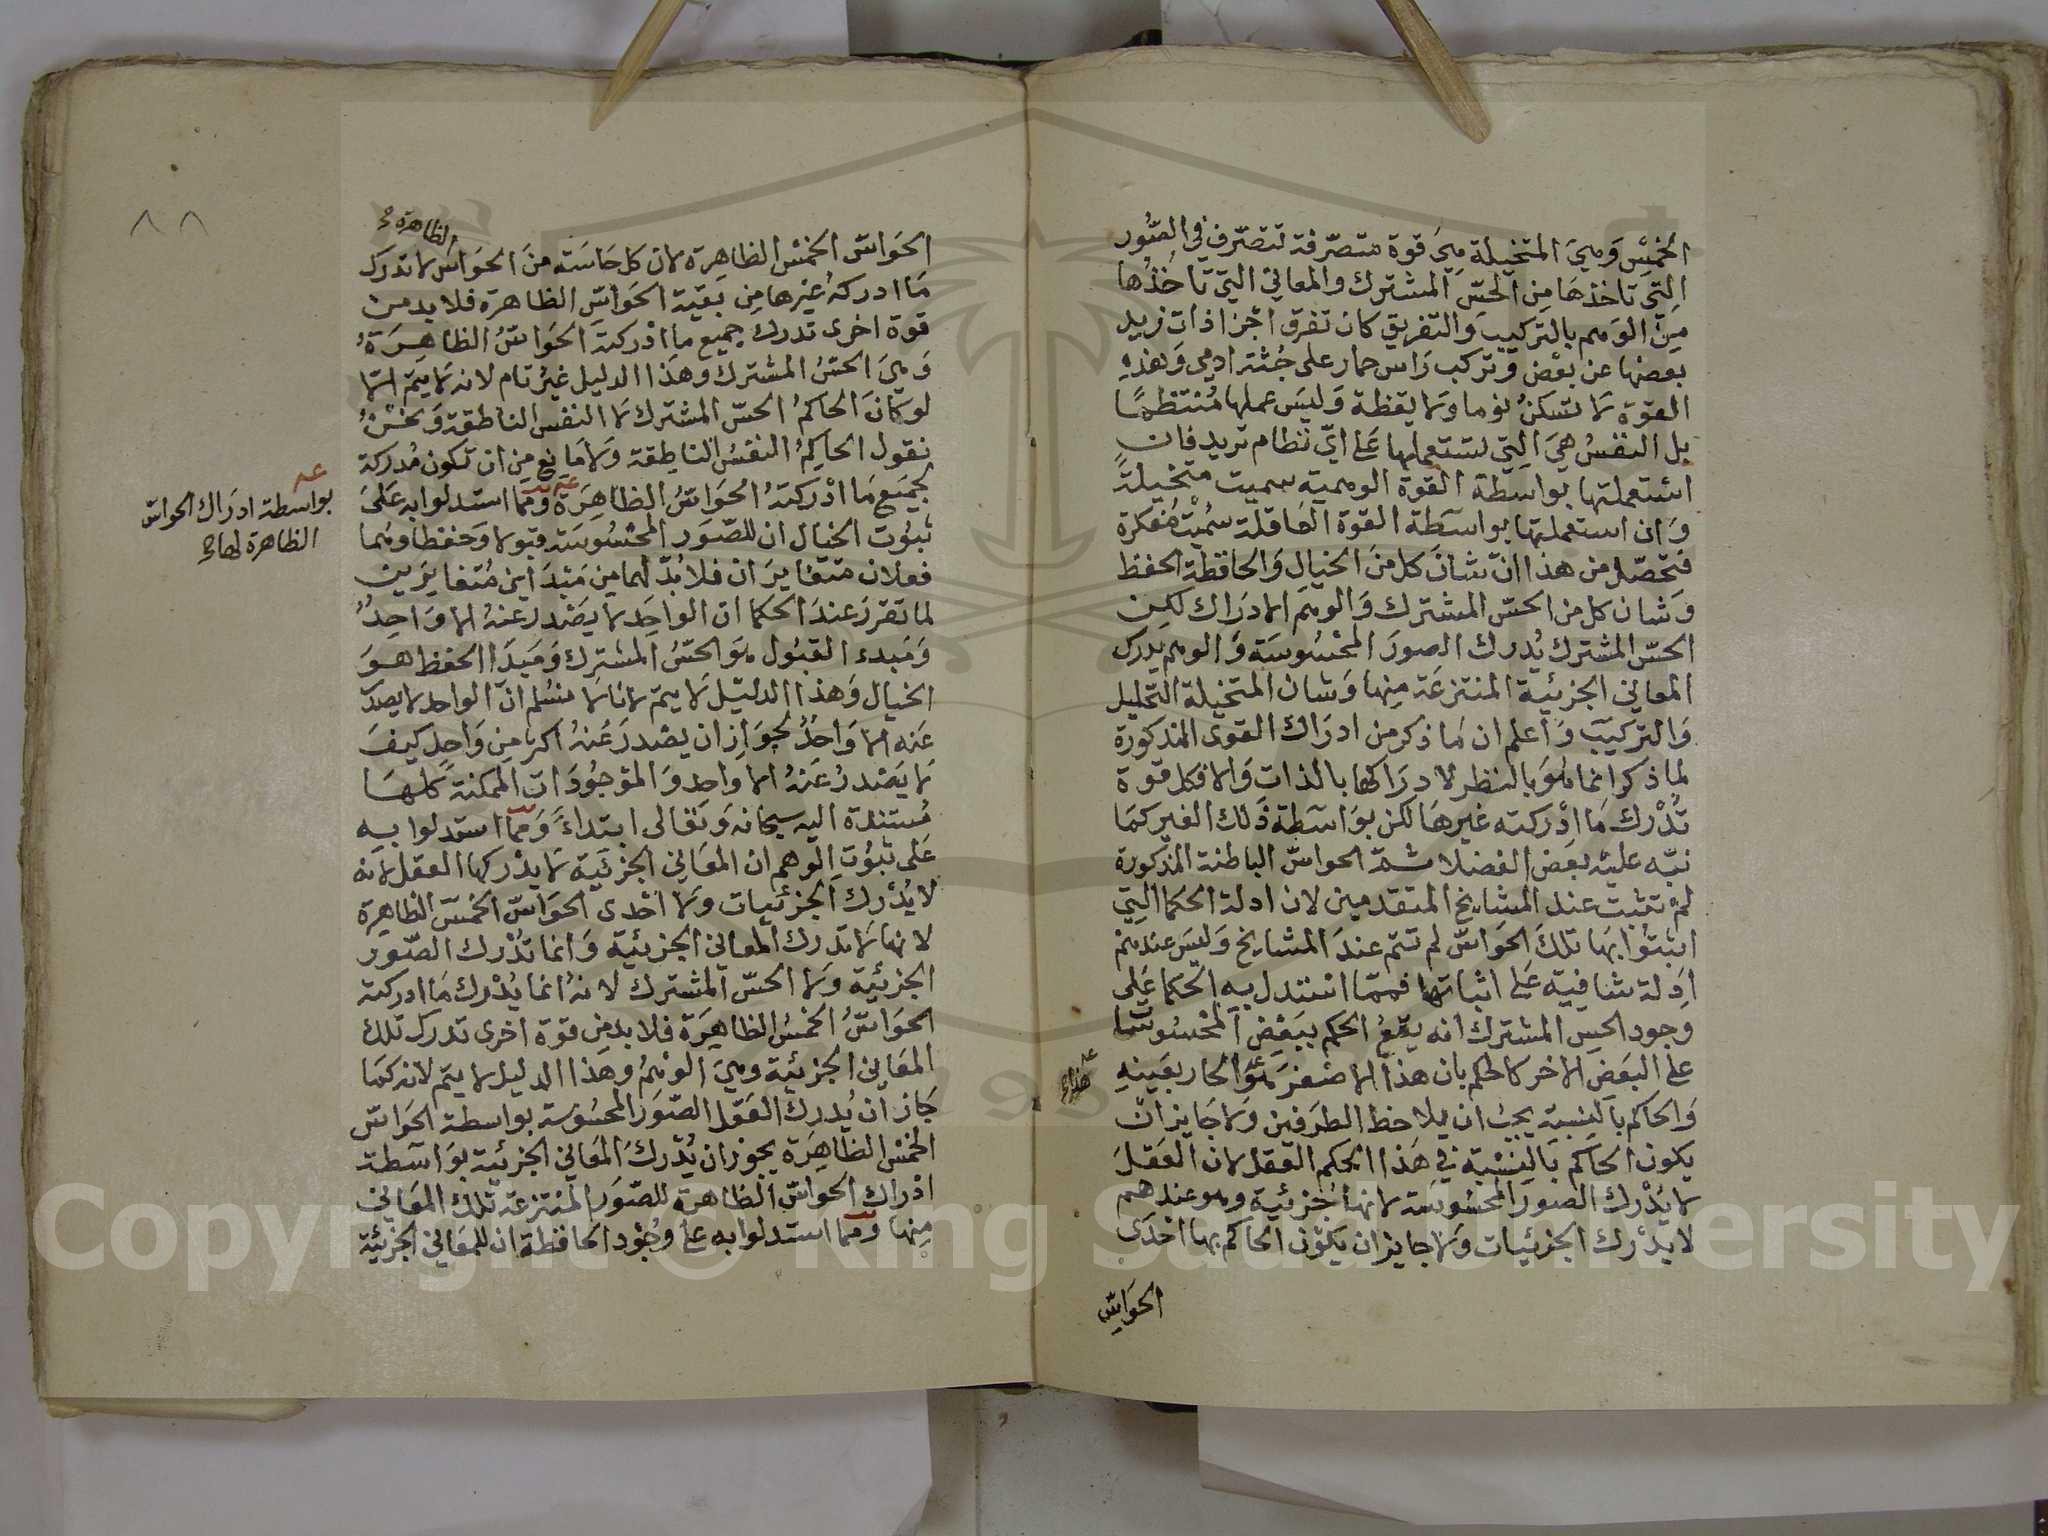 الخمس وهي المتخيلة هي قوة متصرفة تتصرف في الصور
التي تاخذها من الحس المشترك والمعاني التي تاخذها
من الوهم بالتركيب والتفريق كان تفرق اجزا ذات زيد
بعضها عن بعض وتركب راس حمار على جثة ادمي وهذه
القوة لا تسكن نوما ولا يقظة وليس عملها منتظما
بل النفس هي التي تستعملها على اي نظام تريد فان
استعملتها بواسطة القوة الوهمية سميت متخيلة
وان استعملتها بواسطة القوة العاقلة سميت مفكرة
فتحصل من هذا ان شان كل من الخيال والحافظة الحفظ
وشان كل من الحس المشترك والوهم الادراك لكن
الحس المشترك يدرك الصور المحسوسة والوهم يدرك
المعاني الجزئية المنتزعة منها وشان المتخيلة التحليل
والتركيب واعلم ان ما ذكر من ادراك القوى المذكورة
لما ذكر انما هو بالنظر لادراكها بالذات والا فكل قوة
تدرك ما ادركته غيرها لكن بواسطة ذلك الغير كما
نبه عليه بعض الفضلا ثم الحواس الباطنة المذكورة
لم تثبت عند المشايخ المتقدمين لان ادلة الحكما التي
اثبتوا بها تلك الحواس لم تتم عند المشايخ وليس عندهم
ادلة شافية على اثباتها فمما استدل به الحكما على
وجود الحس المشترك انه يقع الحكم ببعض المحسوسات
على البعض الاخر كالحكم بان هذا الاصفر هو الحار بعينه
والحاكم بالنسبة يجب ان يلاحظ الطرفين ولا جايز ان
يكون الحاكم بالنسبة في هذا الحكم العقل لان العقل
لا يدرك الصور المحسوسة لانها جزئية وهو عندهم
لا يدرك الجزئيات ولا جايز ان يكون الحاكم بها احدى
الحواس
الظاهرة
الحواس الخمس الظاهرة لان كل حاسة من الحواس لا تدرك
ما ادركه غيرها من بقية الحواس الظاهرة فلا بد من
قوة اخرى تدرك جميع ما ادركته الحواس الظاهرة
وهي الحس المشترك وهذا الدليل غير تام لانه لا يتم الا
لو كان الحاكم الحس المشترك لا النفس الناطقة ونحن
نقول الحاكم النفس الناطقة ولا مانع من ان تكون مدركة
لجميع ما ادركته الحواس الظاهرة ومما استدلوا به على
بواسطة ادراك الحواس
الظاهرة لها
ثبوت الخيال ان للصور المحسوسة قبولا وحفظا وهما
فعلان متغايران فلا بد لهما من مبداين متغايرين
لما تقرر عند الحكما ان الواحد لا يصدر عنه الا واحد
ومبدء القبول هو الحس المشترك ومبدا الحفظ هو
الخيال وهذا الدليل لا يتم لانا لا نسلم ان الواحد لا يصدر
عنه الا واحد لجواز ان يصدر عنه اكثر من واحد كيف
لا يصدر عنه الا واحد والموجودات الممكنة كلها
مستندة اليه سبحانه وتعالى ابتداء ومما استدلوا به
على ثبوت الوهم ان المعاني الجزئية لا يدركها العقل لانه
لا يدرك الجزئيات ولا احدى الحواس الخمس الظاهرة
لانها لا تدرك المعاني الجزئية وانما تدرك الصور
الجزئية ولا الحس المشترك لانه انما يدرك ما ادركته
الحواس الخمس الظاهرة فلا بد من قوة اخرى تدرك تلك
المعاني الجزئية وهي الوهم وهذا الدليل لا يتم لانه كما
جاز ان يدرك العقل الصور المحسوسة بواسطة الحواس
الخمس الظاهرة يجوز ان يدرك المعاني الجزئية بواسطة
ادراك الحواس الظاهرة للصور المنتزعة تلك المعاني
منها ومما استدلوا به على وجود الحافظة ان للمعاني الجزئية
٨٨
Copyright © King Saud University